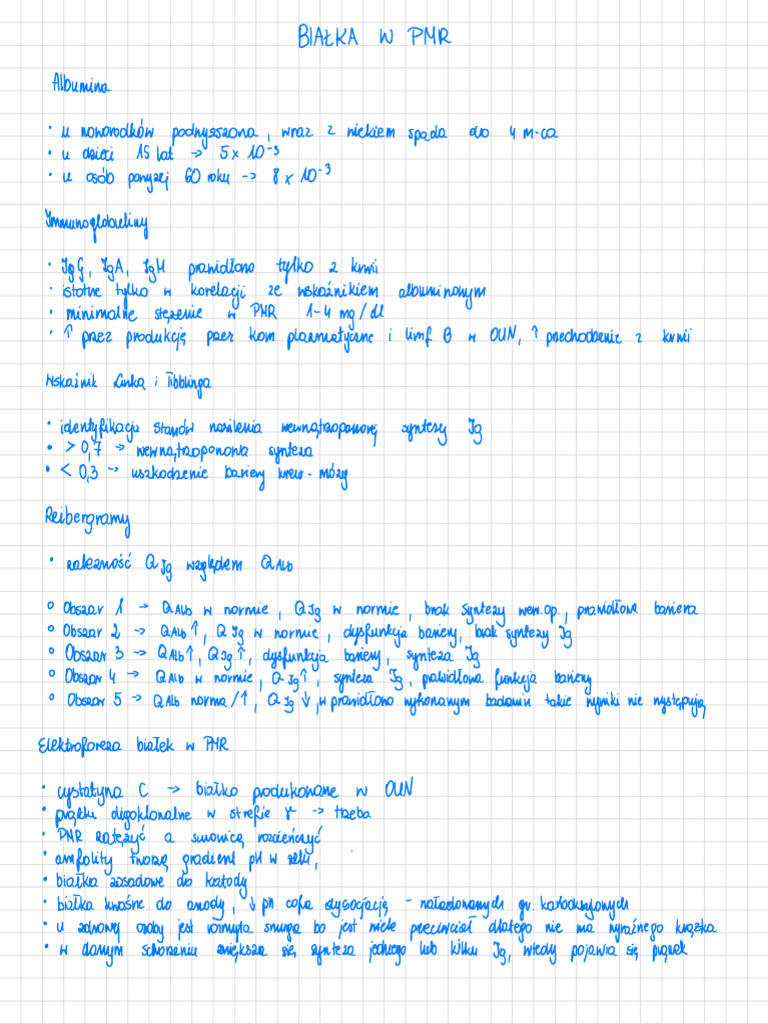 BIAŁKA W PMR
Albumina
• u noworodków podwyższona, wraz z wiekiem spada do 4 m-ca
• u dzieci 15 lat → 5 x 10⁻³
• u osób powyżej 60 roku → 8 x 10⁻³
Immunoglobuliny
• IgG, IgA, IgM prawidłowo tylko z krwi
• istotne tylko w korelacji ze wskaźnikiem albuminowym
• minimalne stężenie w PMR 1-4 mg/dl
• ↑ przez produkcję przez kom plazmatyczne i limf B w OUN, ↑ przechodzenie z krwi
Wskaźnik Linka i Tibblinga
• identyfikacja stanów nasilenia wewnątrzoponowej syntezy Ig
• > 0,7 → wewnątrzoponowa synteza
• < 0,3 → uszkodzenie bariery krew-mózg
Reibergramy
• zależność Q Ig względem Q Alb
○ Obszar 1 → Q Alb w normie, Q Ig w normie, brak syntezy wew.op, prawidłowa bariera
○ Obszar 2 → Q Alb ↑, Q Ig w normie, dysfunkcja bariery, brak syntezy Ig
○ Obszar 3 → Q Alb ↑, Q Ig ↑, dysfunkcja bariery, synteza Ig
○ Obszar 4 → Q Alb w normie, Q Ig ↑, synteza Ig, prawidłowa funkcja bariery
○ Obszar 5 → Q Alb norma/↑, Q Ig ↓, w prawidłowo wykonanym badaniu takie wyniki nie występują
Elektroforeza białek w PMR
• cystatyna C → białko produkowane w OUN
• prążki oligoklonalne w strefie γ → trzeba
• PMR zatężyć a surowicę rozcieńczyć
• amfolity tworzą gradient pH w żelu,
• białka zasadowe do katody
• białka kwaśne do anody, ↓ pH cofa dysocjację - naładowanych gr. karboksylowych
• u zdrowej osoby jest rozmyta smuga bo jest wiele przeciwciał dlatego nie ma wyraźnego krążka
• w danym schorzeniu zwiększa się synteza jednego lub kilku Ig, wtedy pojawia się prążek